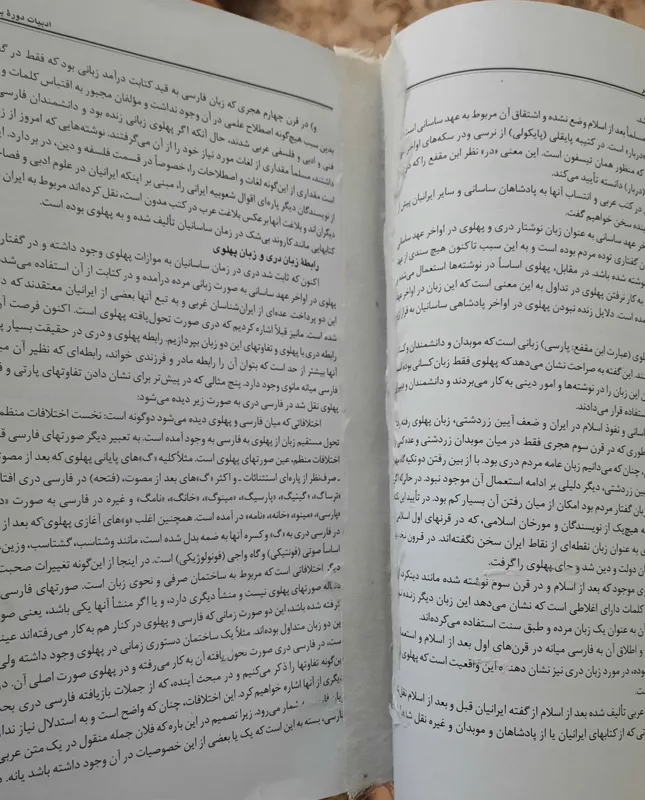 شد.
مسلماً بعد از اسلام وضع نشده و اشتقاق آن مربوط به عهد ساسانی است
«دربار» است. در کتیبه پایقلی (پایکولی) از نرسی ودر سکه‌های اواخر
که منظور همان تیسفون است. این معنی «در» نظر ابن مقفع را که دری
(دربار) دانسته تأیید می‌کند.
در کتب عربی و انتساب آنها به پادشاهان ساسانی و سایر ایرانیان پیش از
ینده سخن خواهیم گفت.
اخر عهد ساسانی به عنوان زبان نوشتار دری و پهلوی در اواخر عهد ساسانی
ن گفتاری توده مردم بوده است و به این سبب تاکنون هیچ سندی از عهد
نوشته شده باشد. در مقابل، پهلوی اساساً در نوشته‌ها استعمال می‌شده
به کار نرفتن پهلوی در تداول به این معنی است که این زبان در اواخر عهد
مده است. دلایل زنده نبودن پهلوی در اواخر پادشاهی ساسانیان به قرار زیر
لوی (عبارت ابن مقفع: پارسی) زبانی است که موبدان و دانشمندان و
ند. این گفته به صراحت نشان می‌دهد که پهلوی فقط زبان کسانی بوده است
این زبان را در نوشته‌ها و امور دینی به کار می‌بردند و دانشمندان و
ستفاده قرار می‌دادند.
اسانی و نفوذ اسلام در ایران و ضعف آیین زردشتی، زبان پهلوی رفته رفته
طوری که در قرن سوم هجری فقط در میان موبدان زردشتی و عده کمی
، چنان که می‌دانیم زبان عامه مردم دری بود. با از بین رفتن دو تکیه گاه
یین زردشتی، دیگر دلیلی بر ادامه استعمال آن موجود نبود. در حالی که اگر
زبان گفتار مردم بود امکان از میان رفتن آن بسیار کم بود. در تأیید این
ه هیچ‌یک از نویسندگان و مورخان اسلامی، که در قرنهای اول اسلامی
ی به عنوان زبان نقطه‌ای از نقاط ایران سخن نگفته‌اند. در قرون
ان دولت و دین شد و جای پهلوی را گرفت.
وی موجود که بعد از اسلام و در قرن سوم نوشته شده مانند دینکرد
کلمات دارای اغلاطی است که نشان می‌دهد این زبان دیگر زنده
آن به عنوان یک زبان مرده و طبق سنت استفاده می‌کرده‌اند.
و اطلاق آن به فارسی میانه در قرن‌های اول بعد از اسلام و استعمال
وده، در مورد زبان دری نیز نشان دهنده این واقعیت است که پهلوی
ست.
عربی تألیف شده بعد از اسلام از گفته ایرانیان قبل و بعد از اسلام نقل
نی که از کتابهای ایرانیان یا از پادشاهان و موبدان و غیره نقل شده
ادبیات دورۀ
و) در قرن چهارم هجری که زبان فارسی به قید کتابت درآمد زبانی بود که فقط در
بدین سبب هیچ‌گونه اصطلاح علمی در آن وجود نداشت و مؤلفان مجبور به اقتباس کلمات و
فنی و ادبی و فلسفی عربی شدند، حال آنکه اگر پهلوی زبانی زنده بود و دانشمندان فارسی
داشتند، مسلماً مقداری از لغات مورد نیاز خود را از آن می‌گرفتند. نوشته‌هایی که امروز از
است مقداری از این‌گونه لغات و اصطلاحات را، خصوصاً در قسمت فلسفه و دین، در بردارد.
از نویسندگان دیگر پاره‌ای اقوال شعوبیه ایرانی را، مبنی بر اینکه ایرانیان در علوم ادبی و
دیگران‌اند و بلاغت آنها برعکس بلاغت عرب در کتب مدون است، نقل کرده‌اند مربوط به ایران
کتابهایی مانند کاروند بی‌شک در زمان ساسانیان تألیف شده و به پهلوی بوده است.
رابطۀ زبان دری و زبان پهلوی
اکنون که ثابت شد دری در زمان ساسانیان به موازات پهلوی وجود داشته و در گفتار
پهلوی در اواخر عهد ساسانی به صورت زبانی مرده درآمده و در کتابت از آن استفاده می‌شد
این دو پرداخت. عده‌ای از ایران‌شناسان غربی و به تبع آنها بعضی از ایرانیان معتقدند که
شده است. مانیز قبلاً اشاره کردیم که دری صورت تحول‌یافته پهلوی است. اکنون فرصت آن
رابطه دری با پهلوی و تفاوتهای این دو زبان بپردازیم. رابطه پهلوی و دری در حقیقت بسیار
آنها بیشتر از حد است که بتوان آن را رابطه مادر و فرزندی خواند، رابطه‌ای که نظیر آن
فارسی میانه مانوی وجود دارد. پنج مثالی که در پیش‌تر برای نشان دادن تفاوتهای پارتی و
پهلوی نقل شد در فارسی دری به صورت زیر دیده می‌شود:
اختلافاتی که میان فارسی و پهلوی دیده می‌شود دوگونه است: نخست اختلافات منظم
تحول مستقیم زبان از پهلوی به فارسی به وجود آمده است. به تعبیر دیگر صورتهای فارسی
اختلافات منظم، عین صورتهای پهلوی است. مثلاً کلیه «گ»های پایانی پهلوی که بعد از
ـ صرف‌نظر از پاره‌ای استثنائات ـ و اکثر «گ»های بعد از مصوت، (فتحه) در فارسی دری
«ترساگ»، «گیتیگ»، «پارسیگ»، «مینوگ»، «خانگ»، «نامگ» و غیره در فارسی به صورت
«پارسی»، «مینو»، «خانه»، «نامه» در آمده است. همچنین اغلب «و»های آغازی پهلوی که بعد از
در فارسی دری به «گ» و کسره آنها به ضمه بدل شده است، مانند وشتاسپ، گشتاسب، وزین،
اساساً صوتی (فونتیکی) و گاه واجی (فونولوژیکی) است. در اینجا از این‌گونه تغییرات صحبت
دیگر اختلافاتی است که مربوط به ساختمان صرفی و نحوی زبان است. صورتهای فارسی
دنباله صورتهای پهلوی نیست و منشأ دیگری دارد، و یا اگر منشأ آنها یکی باشد، یعنی
گرفته شده باشد، این دو صورت زمانی که فارسی و پهلوی در کنار هم به کار می‌رفته‌اند
ین دو زبان متداول بوده‌اند. مثلاً یک ساختمان دستوری زمانی در پهلوی وجود داشته ولی
ست، در فارسی دری صورت تحول یافته آن به کار می‌رفته و در پهلوی صورت اصلی آن.
ین‌گونه تفاوتها را ذکر می‌کنیم و در مبحث آینده، که از جملات بازیافته فارسی دری
دیگری از آنها اشاره خواهیم کرد. این اختلافات، چنان که واضح است و به استدلال نیاز
شمار می‌رود. زیرا تصمیم در این باره که فلان جمله منقول در یک متن عربی
پارسی، بسته به این است که یک یا بعضی از این خصوصیات در آن وجود داشته باشد یانه.